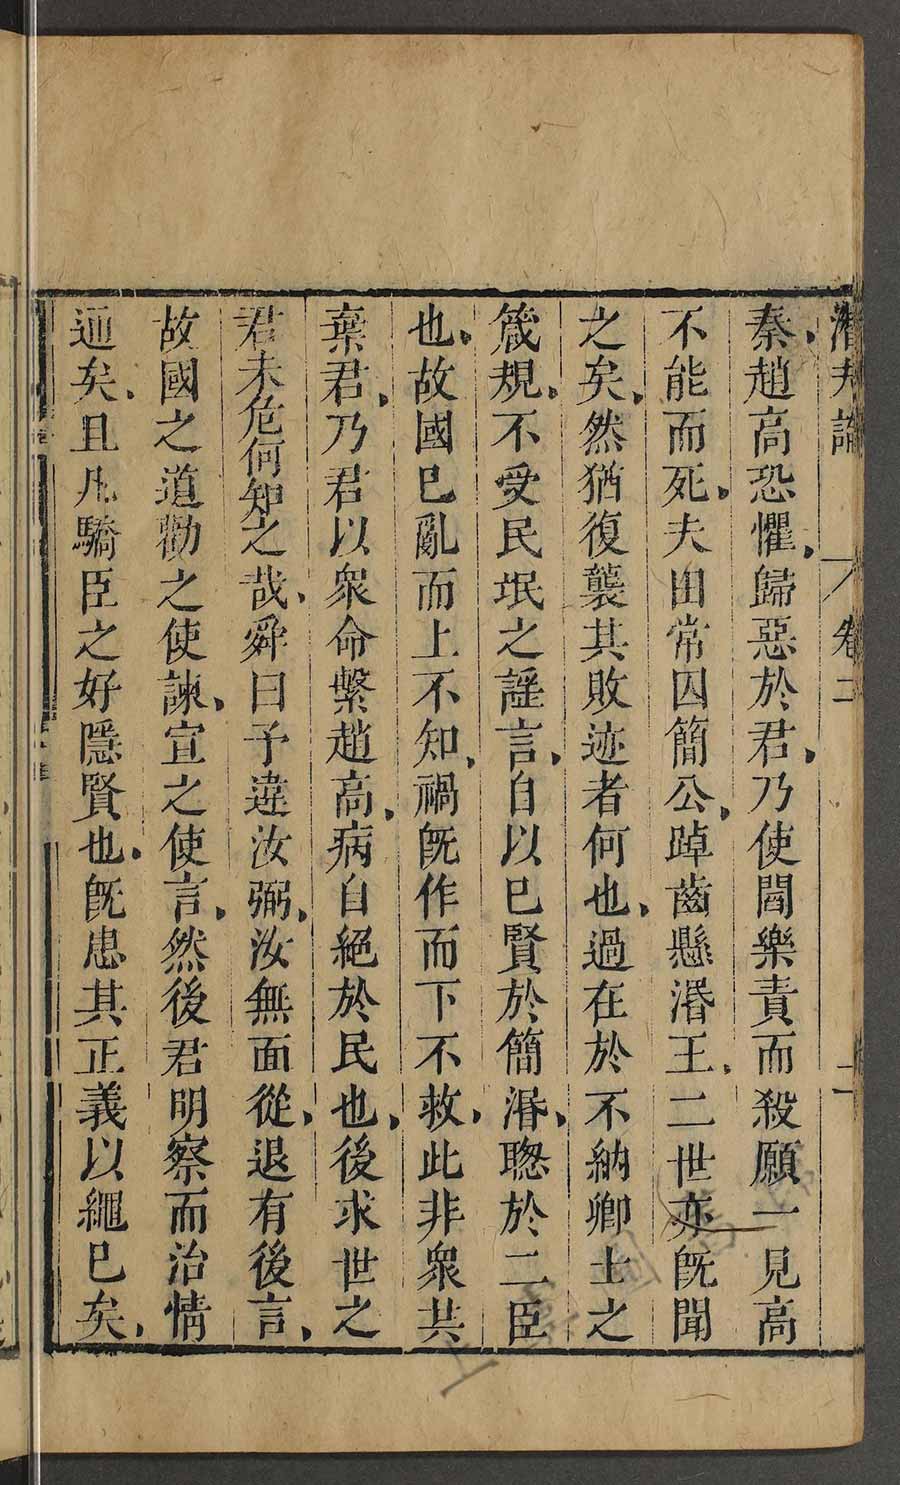 潛夫論 卷二 二
秦、趙高恐懼、歸惡於君、乃使閻樂責而殺願一見高
不能而死、夫田常囚簡公、踔齒懸湣王、二世亦旣聞
之矣、然猶復襲其敗迹者何也、過在於不納卿士之
箴規、不受民氓之謡言、自以巳賢於簡湣、聦於二臣
也、故國巳亂而上不知、禍旣作而下不救、此非衆共
棄君、乃君以衆命繫趙高、病自絕於民也、後求世之
君未危何知之哉、舜曰予違汝弼、汝無面從、退有後言、
故國之道勸之使諫、宣之使言、然後君明察而治情
通矣、且凡驕臣之好隱賢也、旣患其正義以繩巳矣、